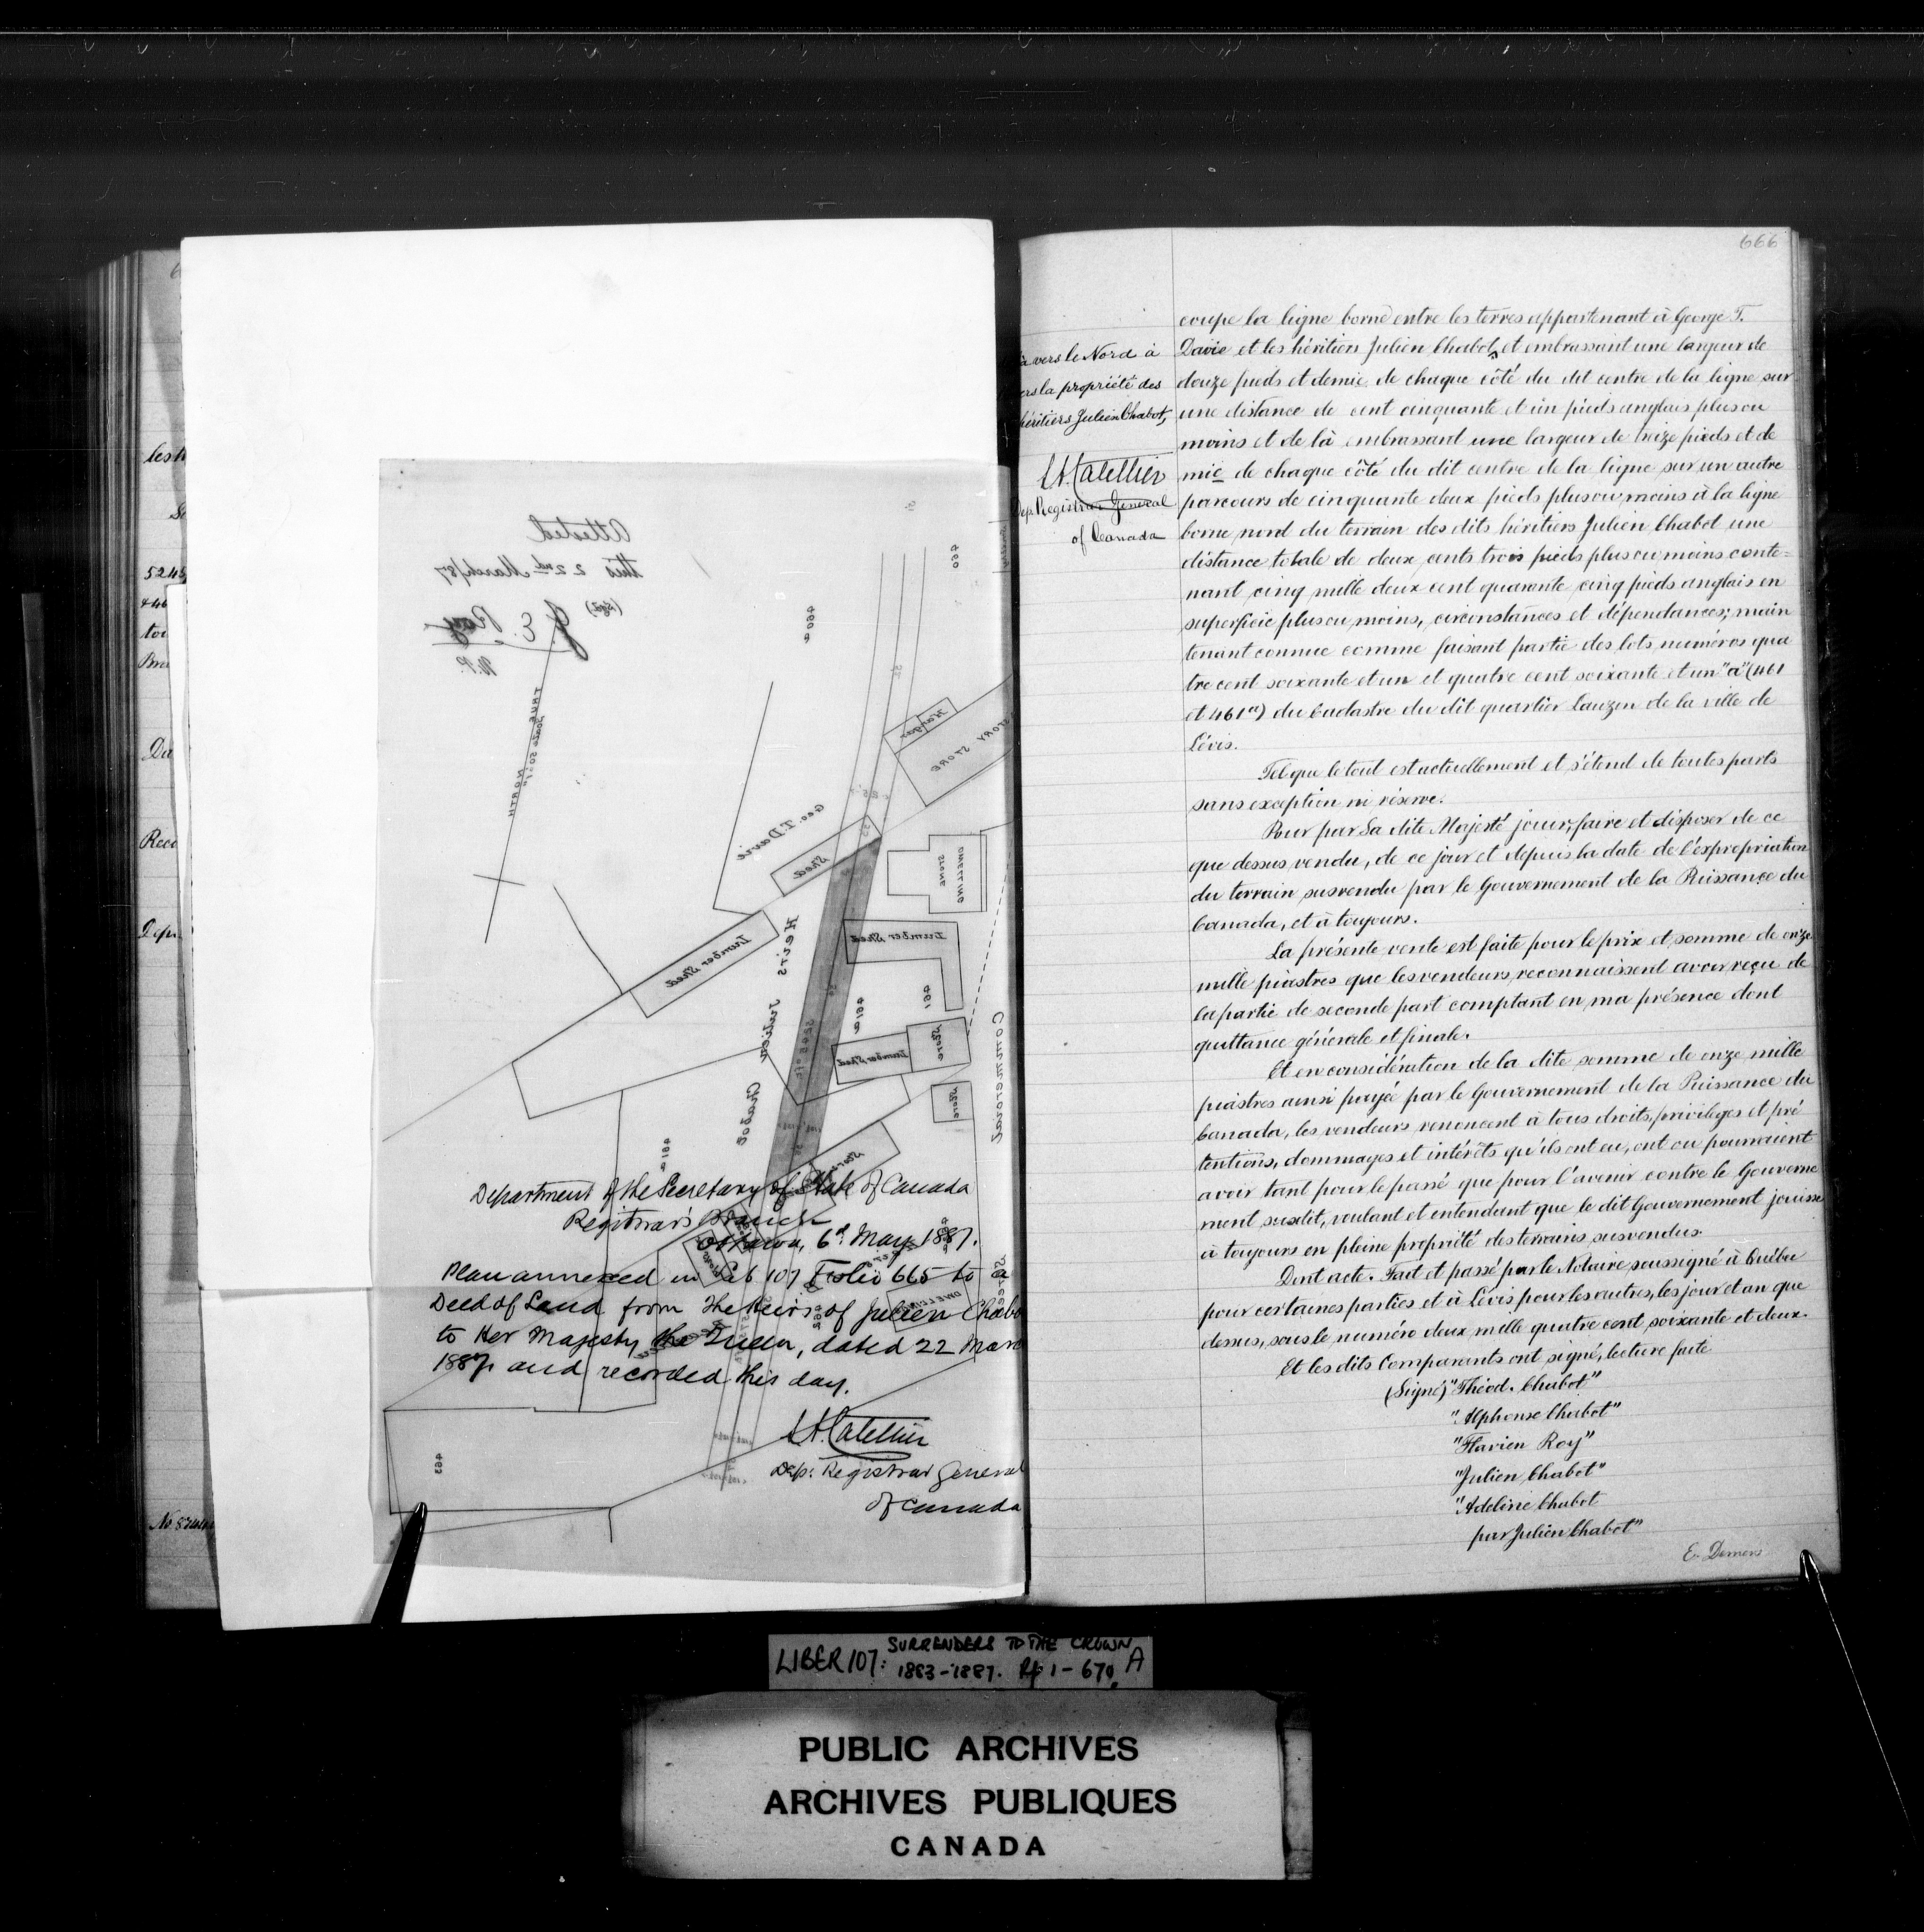 Attested
this 22nd March/87
(sgd) J. E. Roy
N.P.
TRUE NORTH
460
460a
Hangar
STORY STORE
Geo. T. Davie
Shed
STONE
DWELLING
Lumber Shed
Lumber Shed
Heirs Julien Chabot
461
461a
Lumber Shed
Store
Store
Commercial Street
461a
Store
463
Department of the Secretary of State of Canada
Registrar's Branch
Ottawa, 6th May 1887.
Plan annexed in Lib 107 Folio 665 to a
Deed of Land from the heirs of Julien Chabo
to Her Majesty the Queen, dated 22 Marc
1887, and recorded this day.
L.A. Catellier
Dep. Registrar General
of Canada
666
à vers le Nord à
ers la propriété des
héritiers Julien Chabot,
L.A. Catellier
Dep. Registrar General
of Canada
coupe la ligne borne entre les terres appartenant à George T.
Davie et les héritiers Julien Chabot, et embrassant une largeur de
douze pieds et demie de chaque côté du dit centre de la ligne sur
une distance de cent cinquante et un pieds anglais plus ou
moins et de là embrassant une largeur de treize pieds et de
mie de chaque côté du dit centre de la ligne sur un autre
parcours de cinquante deux pieds plus ou moins à la ligne
borne nord du terrain des dits héritiers Julien Chabot une
distance totale de deux cents trois pieds plus ou moins conte=
nant cinq mille deux cent quarante cinq pieds anglais en
superficie plus ou moins, circonstances et dépendances; main
tenant connue comme faisant partie des lots numéros qua
tre cent soixante et un et quatre cent soixante et un "a" (461
et 461a) du Cadastre du dit quartier Lauzon de la ville de
Lévis.
Tel que le tout est actuellement et s'étend de toutes parts
sans exception ni réserve.
Pour par Sa dite Majesté jouir, faire et disposer de ce
que dessus vendu, de ce jour et depuis la date de l'expropriation
du terrain susvendu par le Gouvernement de la Puissance du
Canada, et à toujours.
La présente vente est faite pour le prix et somme de onze
mille piastres que les vendeurs reconnaissent avoir reçu de
la partie de seconde part comptant en ma présence dont
quittance générale et finale.
Et en considération de la dite somme de onze mille
piastres ainsi payée par le Gouvernement de la Puissance du
Canada, les vendeurs renoncent à tous droits, privilèges et pré
tentions, dommages et intérêts qu'ils ont eu, ont ou pourraient
avoir tant pour le passé que pour l'avenir contre le Gouverne
ment susdit, voulant et entendant que le dit Gouvernement jouisse
à toujours en pleine propriété des terrains susvendus.
Dont acte. Fait et passé par le Notaire soussigné à Québec
pour certaines parties et à Lévis pour les autres, les jour et an que
dessus, sous le numéro deux mille quatre cent soixante et deux.
Et les dits Comparants ont signé, lecture faite
(Signé) "Théod. Chabot"
"Alphonse Chabot"
"Flavien Roy"
"Julien Chabot"
"Adeline Chabot
par Julien Chabot"
E. Demers
LIBER 107: SURRENDERS TO THE CROWN A
1883-1887. Pp 1-670
PUBLIC ARCHIVES
ARCHIVES PUBLIQUES
CANADA